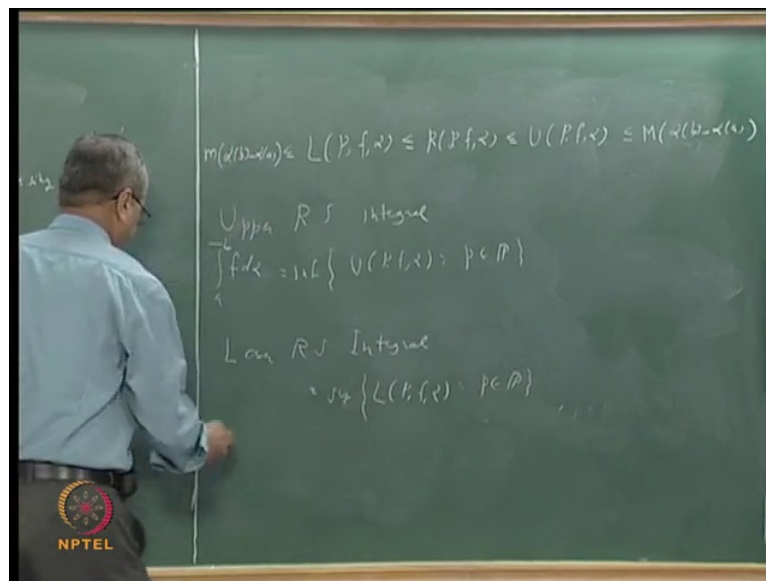 m(α(b)-α(a)) ≤ L(P, f, α) ≤ R(P, f, α) ≤ U(P, f, α) ≤ M(α(b)-α(a))
Upper RS integral
∫ₐ⁻ᵇ f dα = inf { U(P, f, α) : P ∈ ℙ }
Lower RS Integral
= sup { L(P, f, α) : P ∈ ℙ }
NPTEL